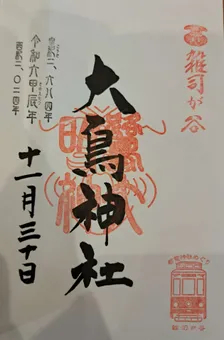 雑司が谷
大鳥神社
皇紀二、六八四年
令和六甲辰年
西暦二、〇二四年
十一月三十日